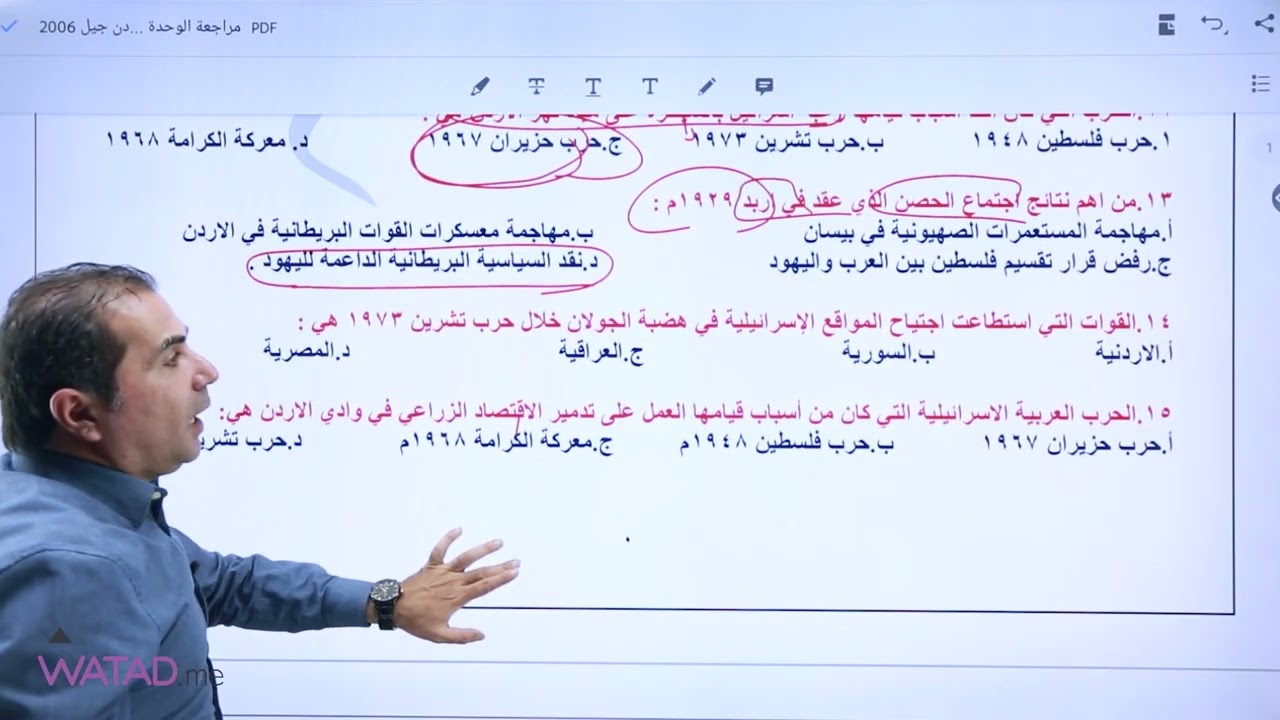 مراجعة الوحدة ...دن جيل 2006 PDF
١.حرب فلسطين ١٩٤٨ ب.حرب تشرين ١٩٧٣ ج.حرب حزيران ١٩٦٧ د. معركة الكرامة ١٩٦٨
١٣.من اهم نتائج اجتماع الحصن الذي عقد في اربد ١٩٢٩م :
أ.مهاجمة المستعمرات الصهيونية في بيسان ب.مهاجمة معسكرات القوات البريطانية في الاردن
ج.رفض قرار تقسيم فلسطين بين العرب واليهود د.نقد السياسية البريطانية الداعمة لليهود .
١٤.القوات التي استطاعت اجتياح المواقع الإسرائيلية في هضبة الجولان خلال حرب تشرين ١٩٧٣ هي :
أ.الاردنية ب.السورية ج.العراقية د.المصرية
١٥.الحرب العربية الاسرائيلية التي كان من أسباب قيامها العمل على تدمير الاقتصاد الزراعي في وادي الاردن هي:
أ.حرب حزيران ١٩٦٧ ب.حرب فلسطين ١٩٤٨م ج.معركة الكرامة ١٩٦٨م د.حرب تشري
1
WATAD.me